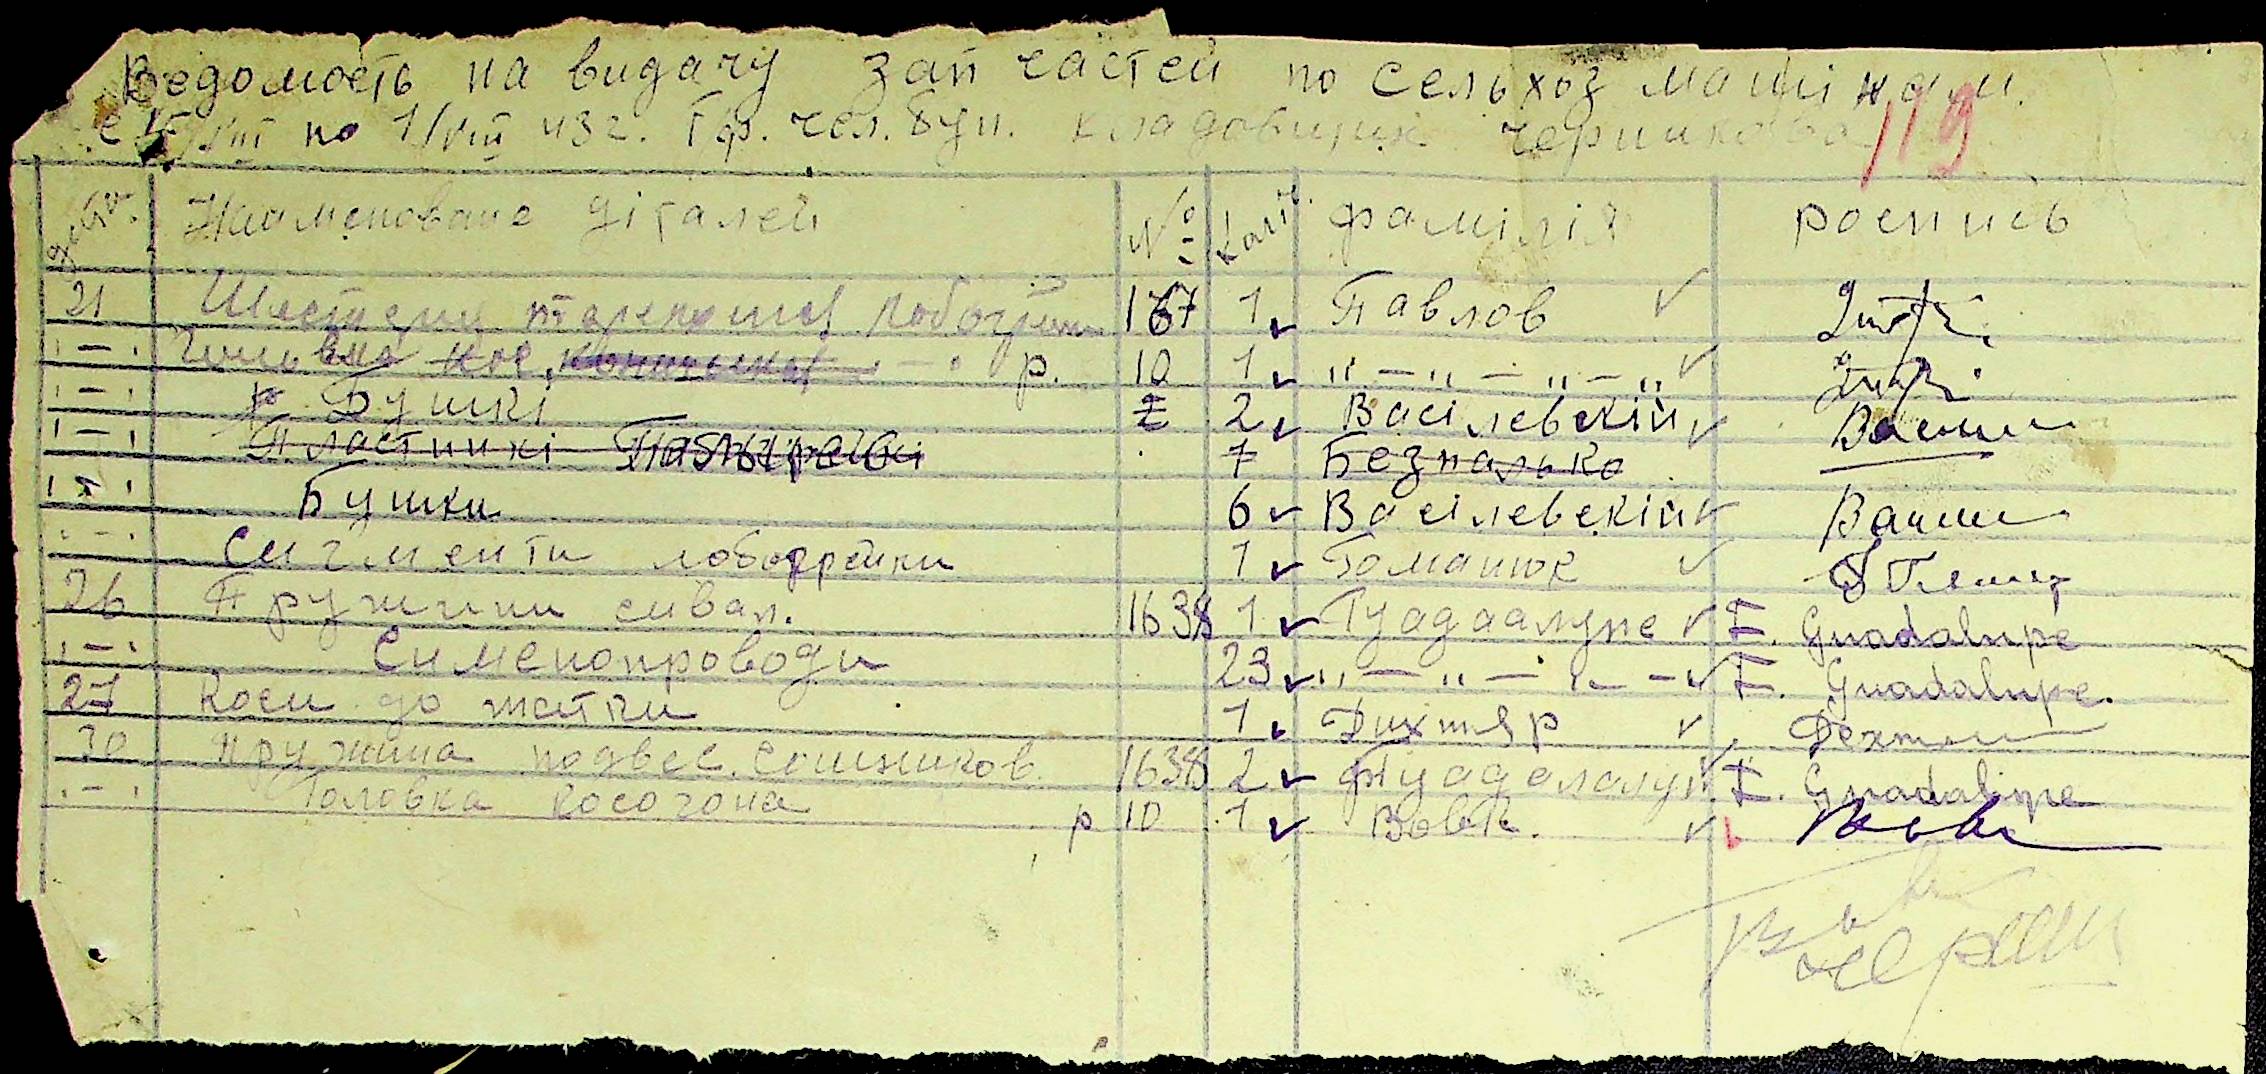 Ведомость на видачу зап частей по сельхоз машінам.
с 1/VIII по 1/VIII 43 г. Гр. чел. бул. кладовщик Черникова 119
Наименование діталей № Коліч. фамілія роспись
21 Шестерни 167 1 Павлов
"–" р. 10 1 "–"–"–"
"–" Бушкі 2 2 Васілевскій
"–" Пластинкі 7 Безпалько
"–" Бушки 6 Васілевскій
"–" Сигменти лобогрейки 1 Гоманюк
26 Пружини сивал. 1638 1 Гуадаалупе F. Guadalupe
"–" Сименопроводи 23 "–"–"– F. Guadalupe.
27 Коси до жатки 1 Дихтяр
30 Пружина подвес. сошников 1638 2 F. Guadalupe
"–" Головка косогона р 10 1 Вовк.